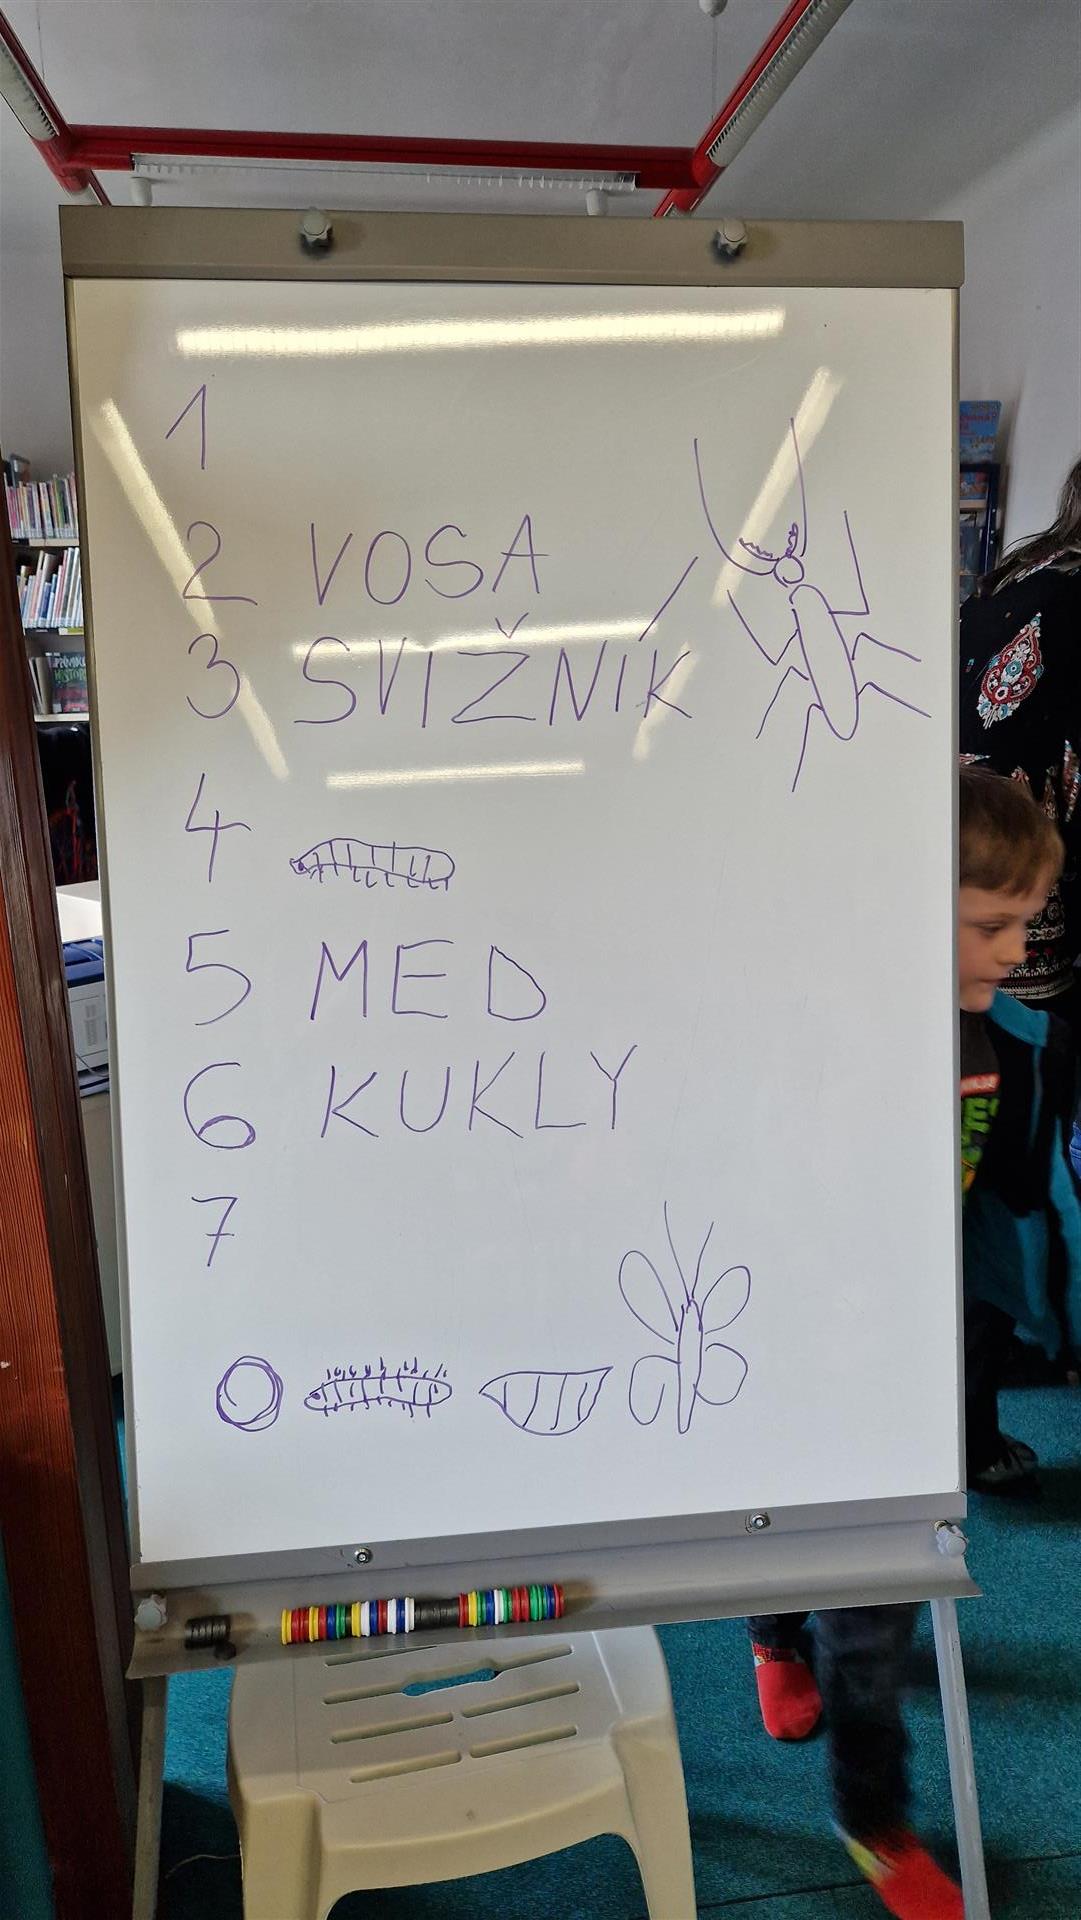 1
2 VOSA
3 SVIŽNÍK
4
5 MED
6 KUKLY
7